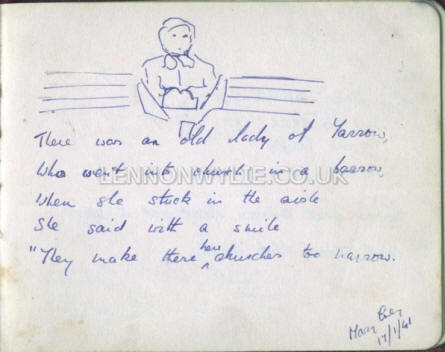 There was an old lady of Yarrow,
Who went into church in a barrow,
LENNONWYLIE.CO.UK
When she stuck in the aisle
She said with a smile
"They make there here churches too narrow.
17/1/41